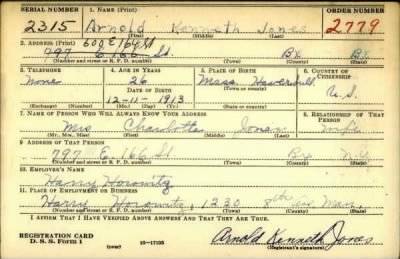 SERIAL NUMBER 1. NAME (Print) ORDER NUMBER
2315 Arnold Kenneth Jones 2779
(First) (Middle) (Last)
2. ADDRESS (Print) 600 E 164 St
797 E. 166 St. Bx Bx
(Number and street or R. F. D. number) (Town) (County) (State)
3. TELEPHONE 4. AGE IN YEARS 5. PLACE OF BIRTH 6. COUNTRY OF CITIZENSHIP
None 26 Haverhill
DATE OF BIRTH (Town or county)
12-11-1913 Mass U.S.
(Exchange) (Number) (Mo.) (Day) (Yr.) (State or country)
7. NAME OF PERSON WHO WILL ALWAYS KNOW YOUR ADDRESS 8. RELATIONSHIP OF THAT PERSON
Mrs Charlotte Jones Wife
(Mr., Mrs., Miss) (First) (Middle) (Last)
9. ADDRESS OF THAT PERSON
797 E. 166 St Bx N.Y.
(Number and street or R. F. D. number) (Town) (County) (State)
10. EMPLOYER'S NAME
Harry Horowitz
11. PLACE OF EMPLOYMENT OR BUSINESS
Harry Horowitz, 1230 8th av Man.
(Number and street or R. F. D. number) (Town) (County) (State)
I AFFIRM THAT I HAVE VERIFIED ABOVE ANSWERS AND THAT THEY ARE TRUE.
REGISTRATION CARD
D. S. S. Form 1 (over) 16-17105 Arnold Kenneth Jones
(Registrant's signature)